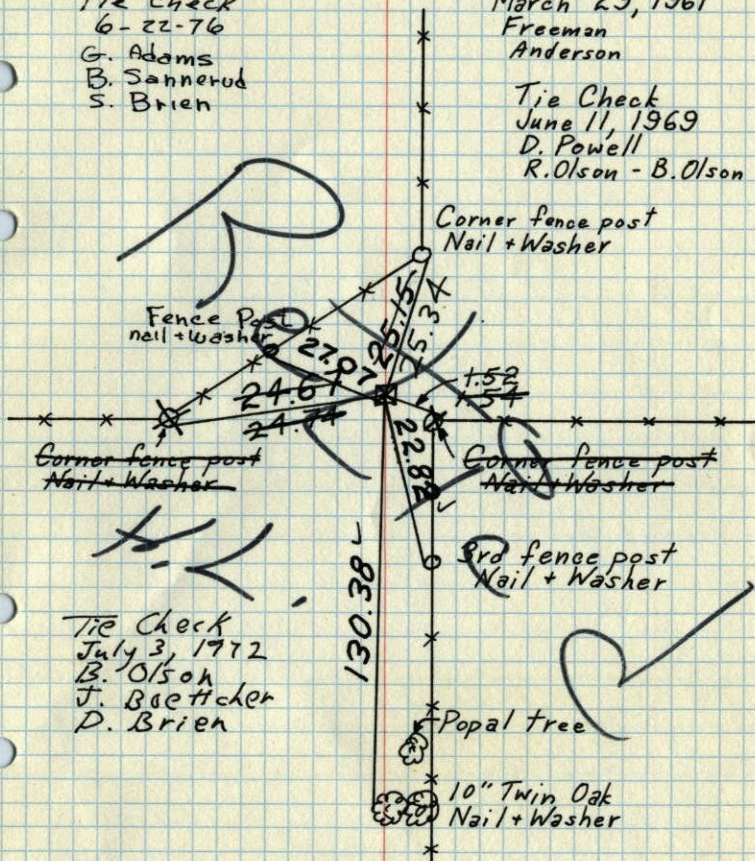 Tie Check
6-22-76
G. Adams
B. Sannerud
S. Brien
March 29, 1961
Freeman
Anderson
Tie Check
June 11, 1969
D. Powell
R. Olson - B. Olson
Corner fence post
Nail + Washer
Fence Post
nail + washer
25.15
25.34
27.07
24.67
24.74
1.52
1.54
Corner fence post
Nail + Washer
Corner fence post
Nail + Washer
22.82
3rd fence post
Nail + Washer
130.38
Tie Check
July 3, 1972
B. Olson
J. Boettcher
D. Brien
Popal tree
10" Twin Oak
Nail + Washer